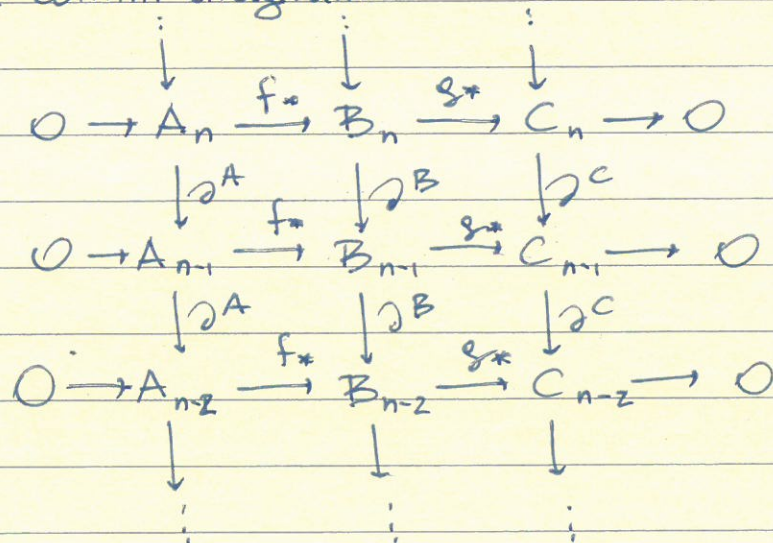 diagram
0 → Aₙ —f*→ Bₙ —g*→ Cₙ → 0
↓∂ᴬ ↓∂ᴮ ↓∂ᶜ
0 → Aₙ₋₁ —f*→ Bₙ₋₁ —g*→ Cₙ₋₁ → 0
↓∂ᴬ ↓∂ᴮ ↓∂ᶜ
0 → Aₙ₋₂ —f*→ Bₙ₋₂ —g*→ Cₙ₋₂ → 0
↓ ↓ ↓